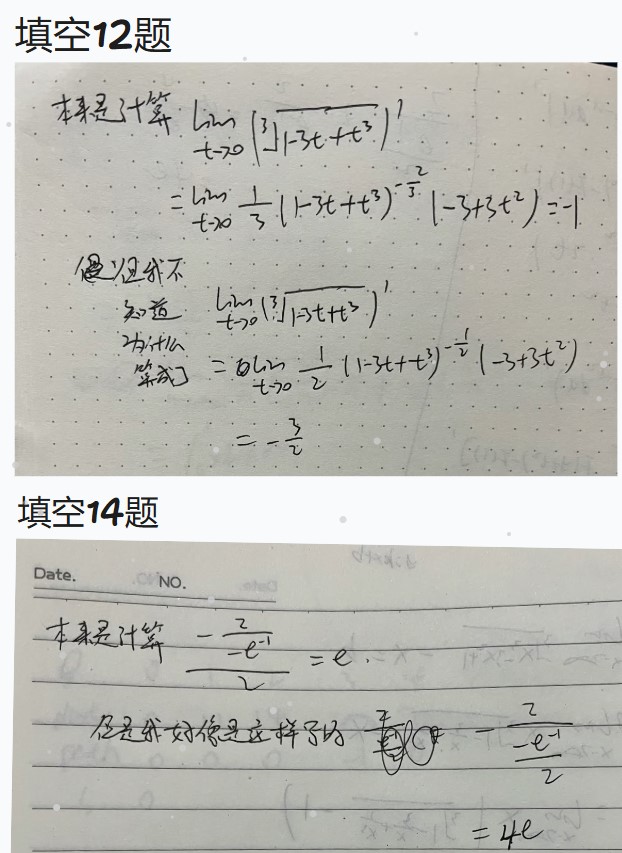 填空12题
本来是计算 lim t→0 (∛(1-3t+t³))'
= lim t→0 1/3 (1-3t+t³)^(-2/3) (-3+3t²) = -1
但我不
知道 lim t→0 (∛(1-3t+t³))'
为什么
算成了 = lim t→0 1/2 (1-3t+t³)^(-1/2) (-3+3t²)
= -3/2
填空14题
Date. NO.
本来是计算 (-2/(-e⁻¹))/2 = e.
但是我好像是这样子的 -2/((-e⁻¹)/2)
= 4e